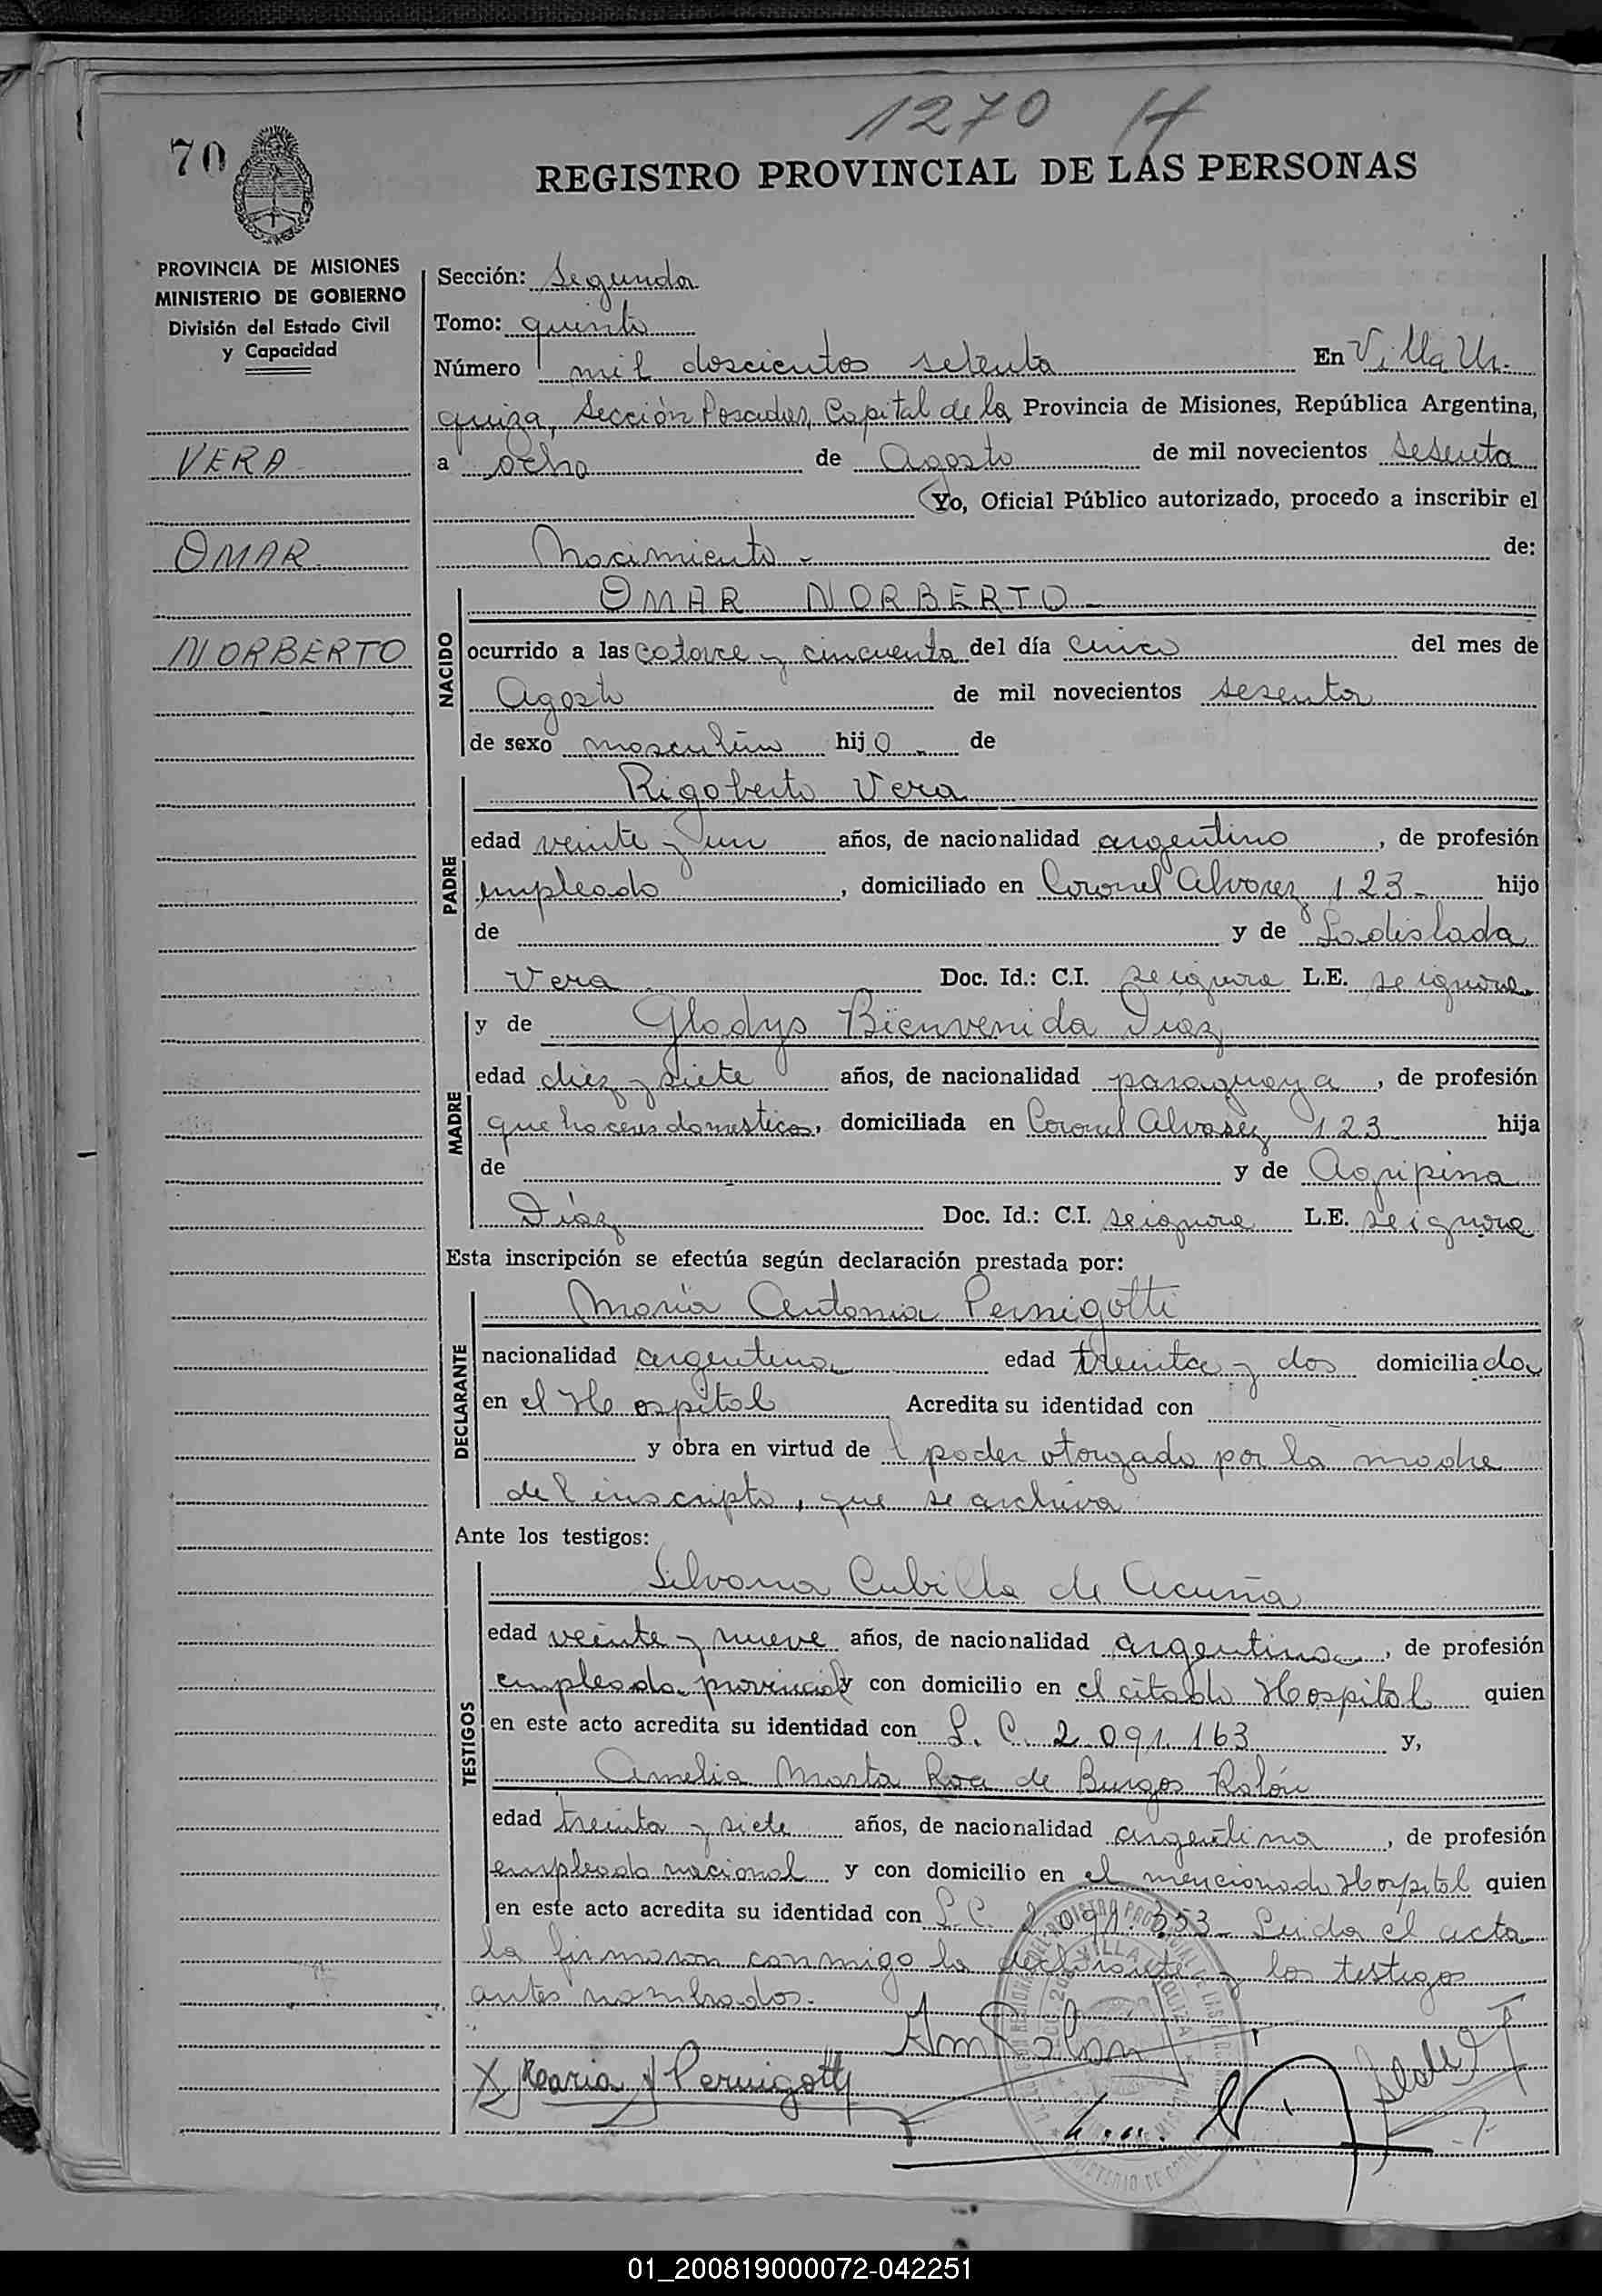 1270 H
70
REGISTRO PROVINCIAL DE LAS PERSONAS
PROVINCIA DE MISIONES
MINISTERIO DE GOBIERNO
División del Estado Civil
y Capacidad
VERA
OMAR
NORBERTO
Sección: Segunda
Tomo: quinto
Número mil doscientos setenta En Villa Ur-
quiza, Sección Posadas, Capital de la Provincia de Misiones, República Argentina,
a ocho de Agosto de mil novecientos sesenta
Yo, Oficial Público autorizado, procedo a inscribir el
Nacimiento - de:
NACIDO
OMAR NORBERTO -
ocurrido a las catorce y cincuenta del día cinco del mes de
Agosto de mil novecientos sesenta
de sexo masculino hijo de
PADRE
Rigoberto Vera
edad veinte y un años, de nacionalidad argentino, de profesión
empleado, domiciliado en Coronel Alvarez 123- hijo
de y de Ladislada
Vera Doc. Id.: C.I. se ignora L.E. se ignora
MADRE
y de Gladys Bienvenida Diaz
edad diez y siete años, de nacionalidad paraguaya, de profesión
quehaceres domesticos, domiciliada en Coronel Alvarez 123 hija
de y de Agripina
Díaz Doc. Id.: C.I. se ignora L.E. se ignora
Esta inscripción se efectúa según declaración prestada por:
DECLARANTE
María Antonia Pernigotti
nacionalidad argentina edad treinta y dos domiciliada
en el Hospital Acredita su identidad con
y obra en virtud del poder otorgado por la madre
del inscripto, que se archiva
Ante los testigos:
TESTIGOS
Silvana Cubilla de Acuña
edad veinte y nueve años, de nacionalidad argentina, de profesión
empleada provincial y con domicilio en el citado Hospital quien
en este acto acredita su identidad con L. C. 2.091.163 y,
Amelia Marta Roa de Burgos Rolón
edad treinta y siete años, de nacionalidad argentina, de profesión
empleada nacional y con domicilio en el mencionado Hospital quien
en este acto acredita su identidad con L.C. 2.091.353- Leida el acta
la firmaron conmigo la declarante y los testigos
antes nombrados.-
Maria A Pernigotti
01_200819000072-042251